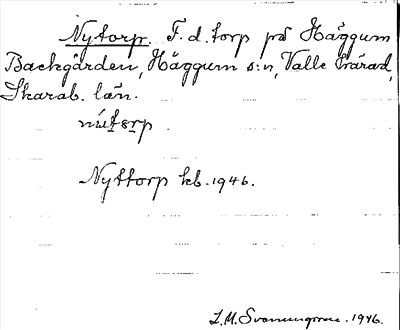 Nytorp. F. d. torp på Häggum
Backgården, Häggum s:n, Valle härad,
Skarab. län.
Nyttorp kb. 1946.
1946.